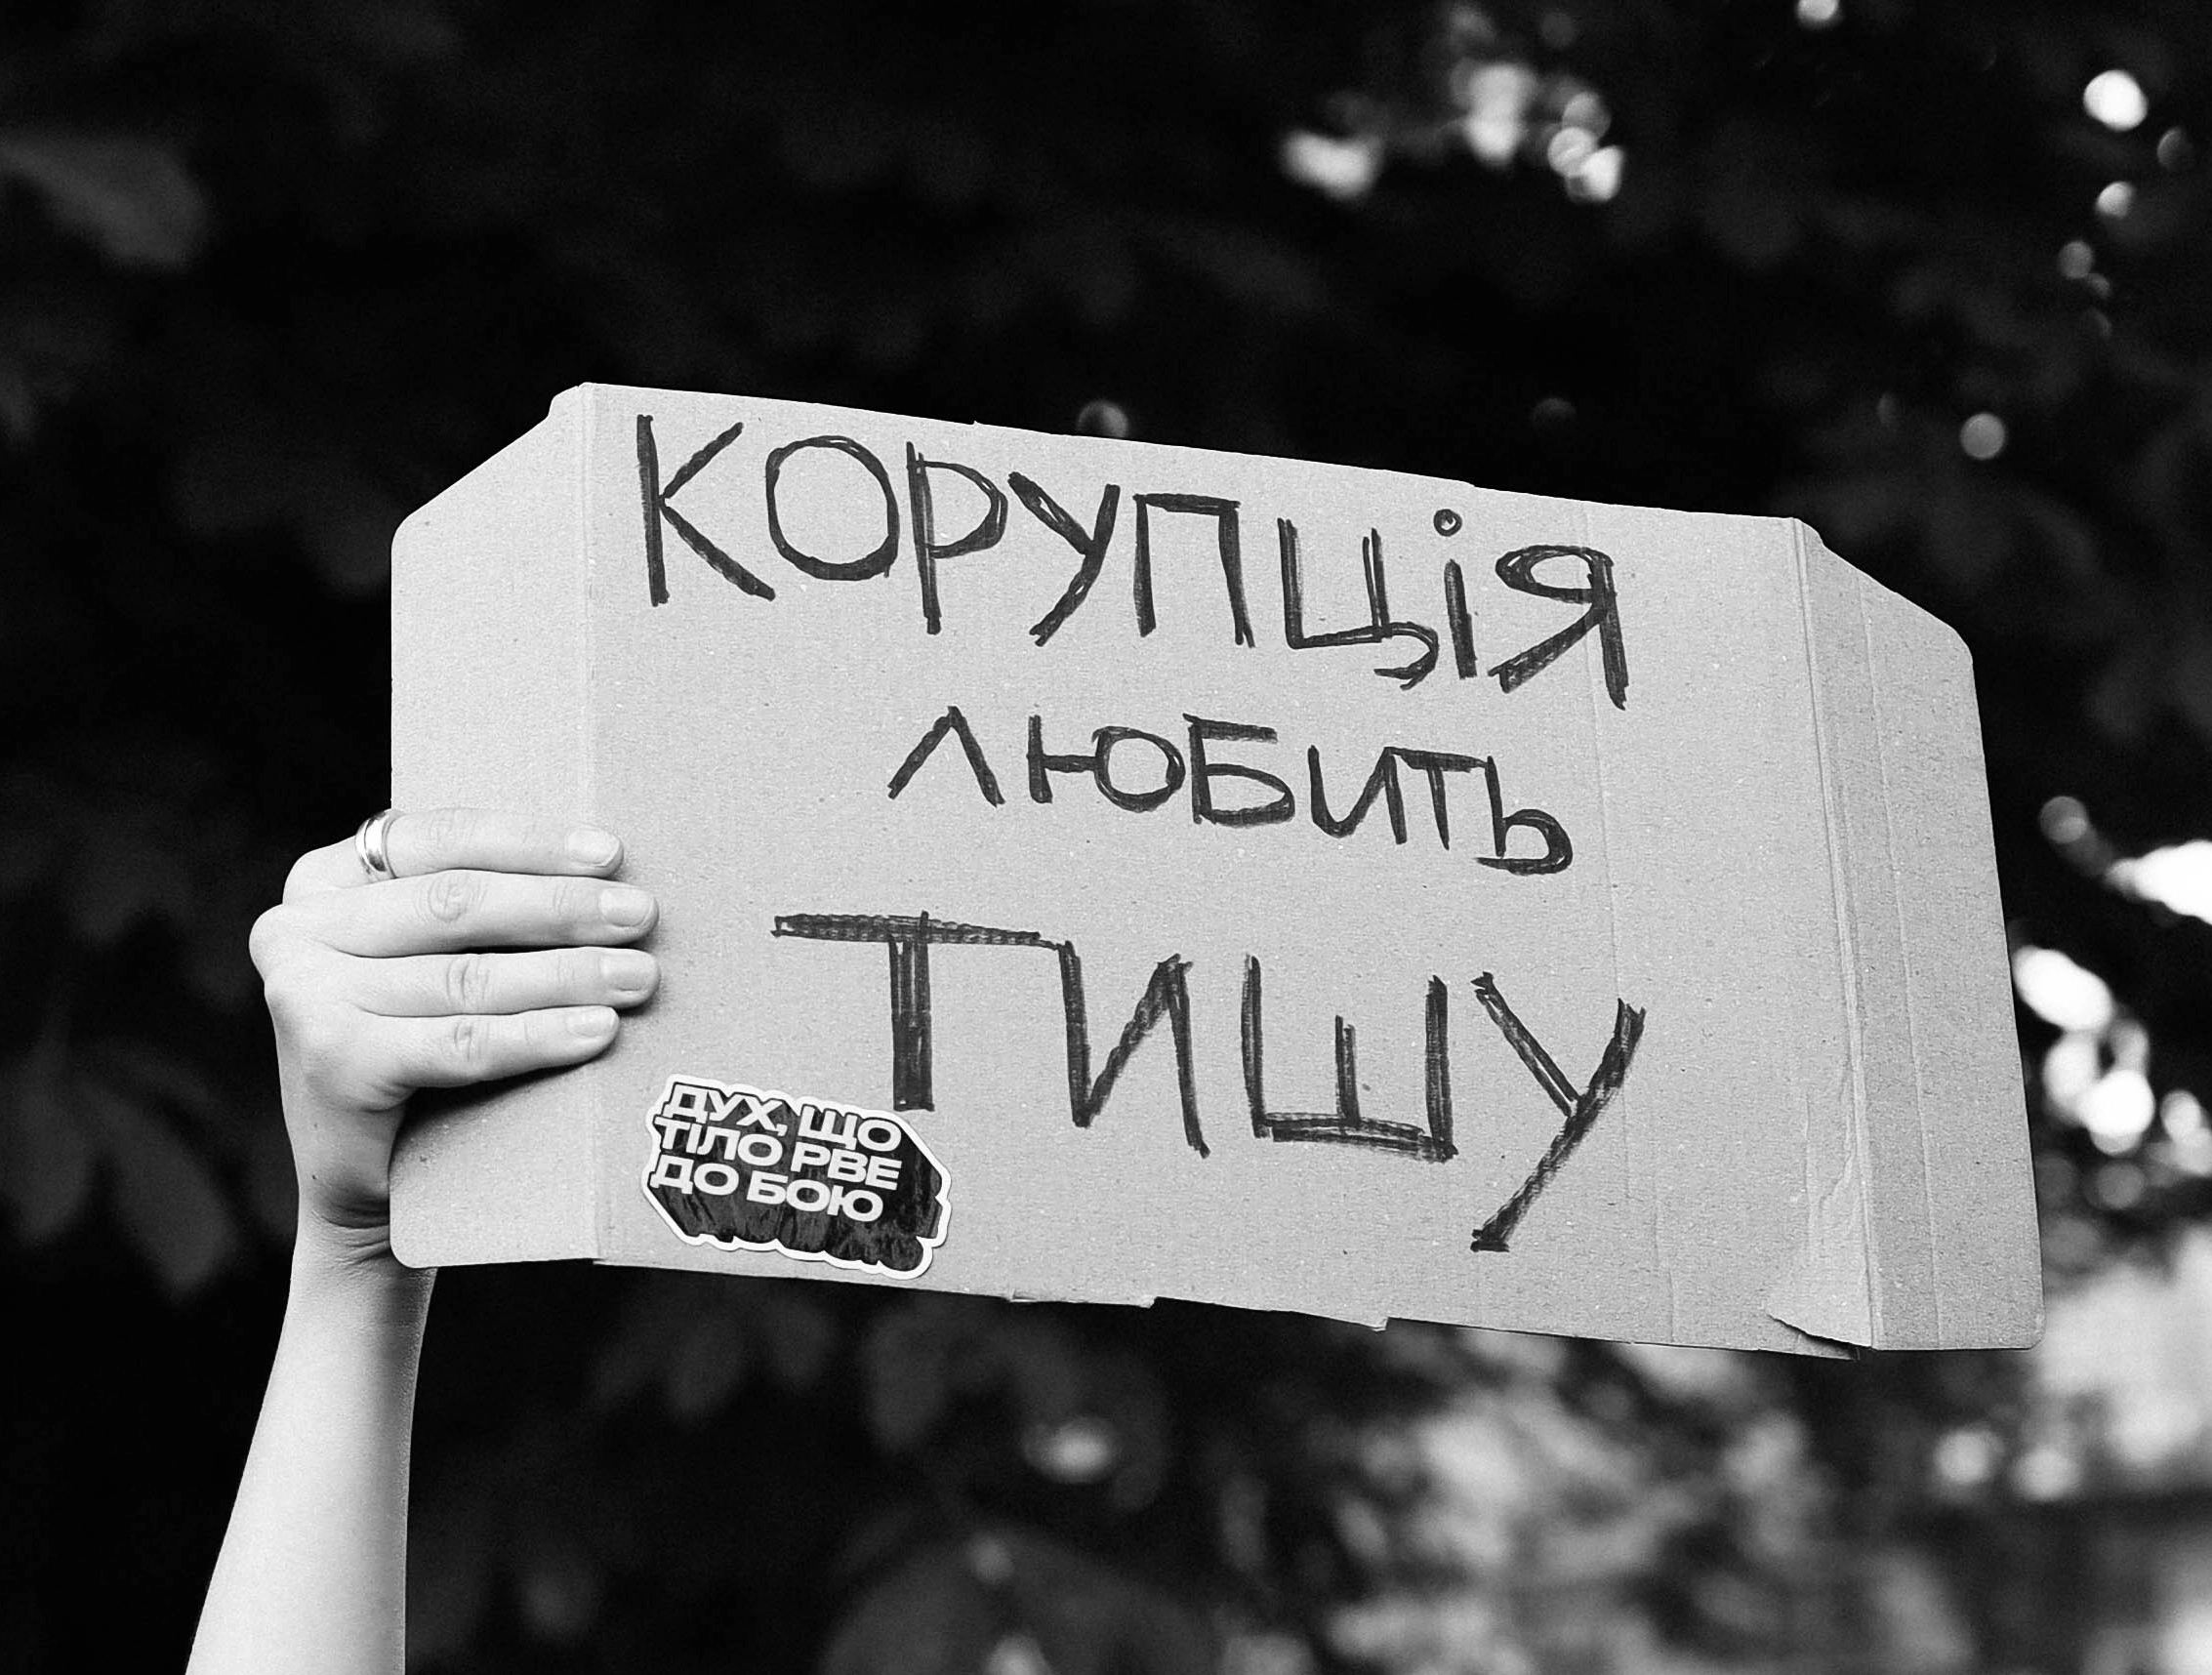 КОРУПЦІЯ
ЛЮБИТЬ
ТИШУ
ДУХ, ЩО
ТІЛО РВЕ
ДО БОЮ